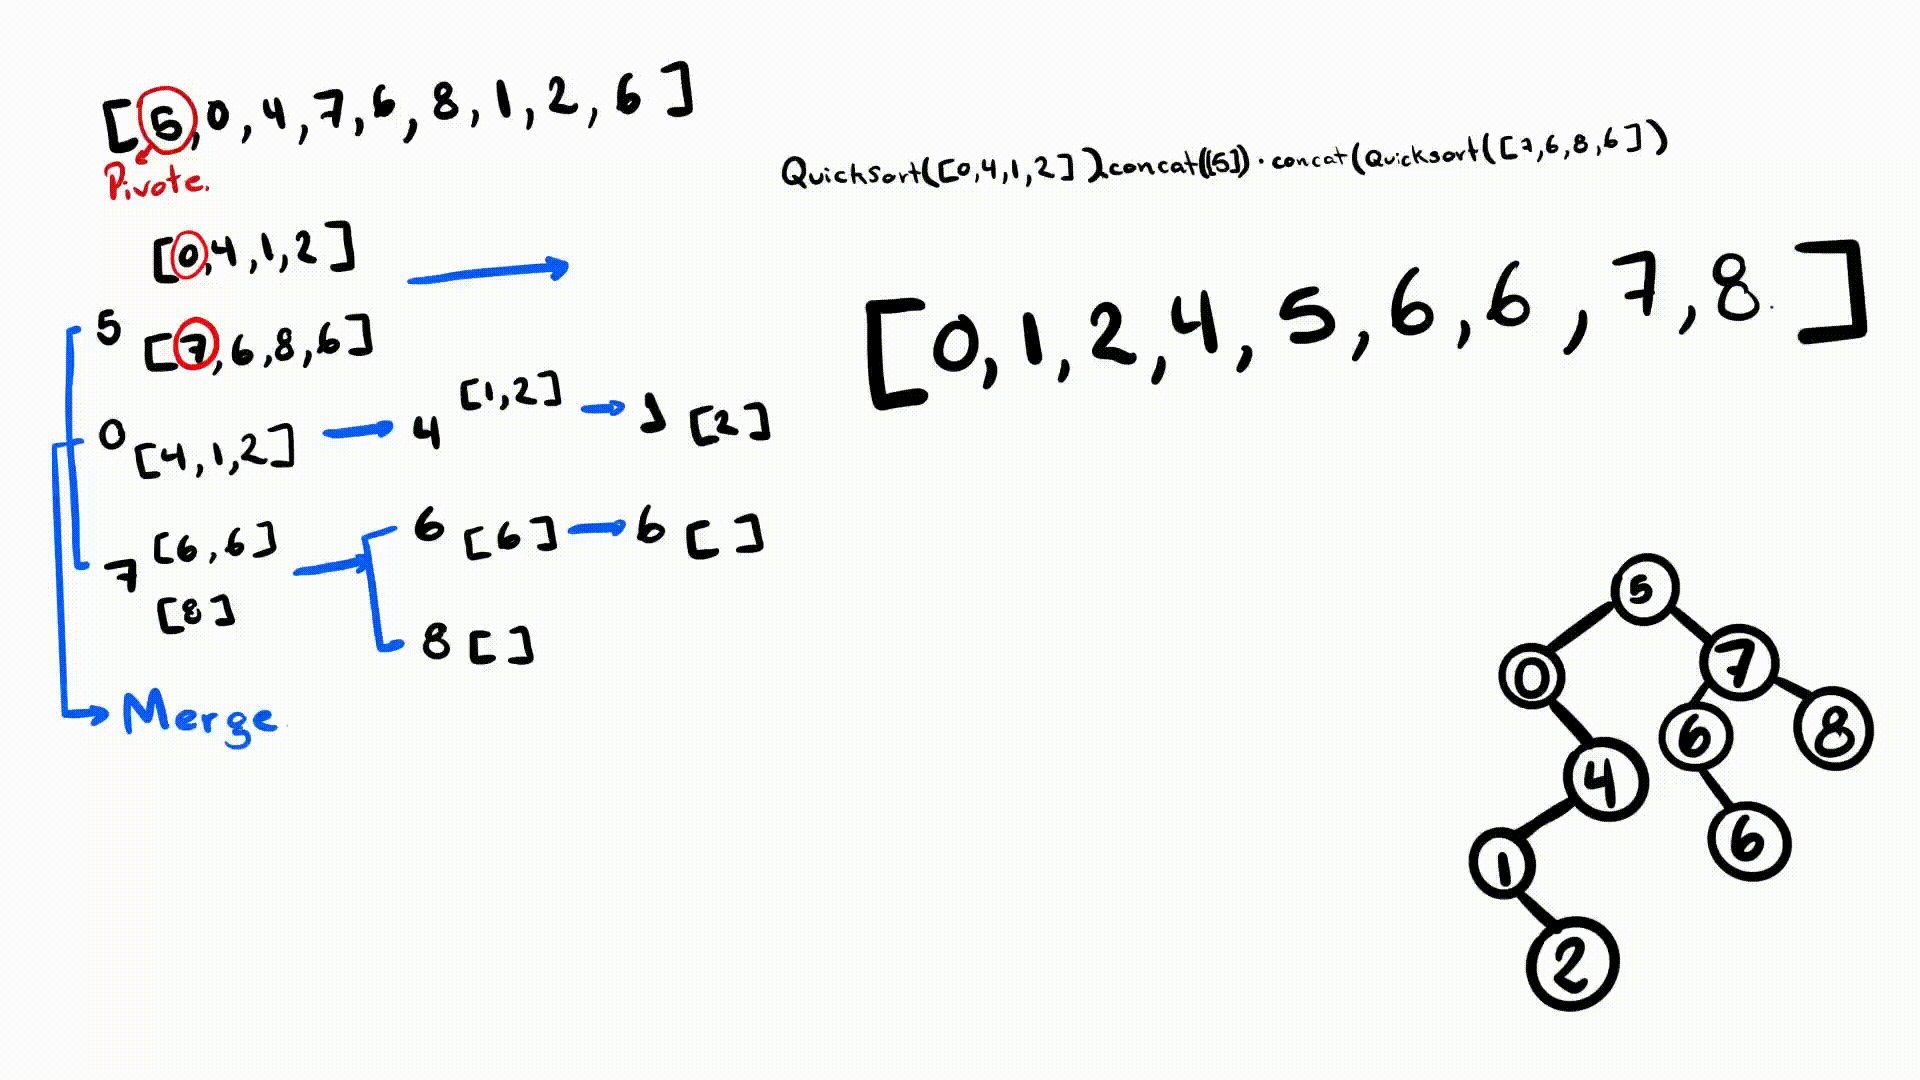 [5,0,4,7,6,8,1,2,6]
Pivote.
QuickSort([0,4,1,2]).concat([5]).concat(Quicksort([7,6,8,6]))
[0,4,1,2]
5 [7,6,8,6]
[0,1,2,4,5,6,6,7,8]
0 [4,1,2] → 4 [1,2] → 1 [2]
7 [6,6] [8]
6 [6] → 6 []
8 []
Merge
5
0 7
6 8
4
6
1
2